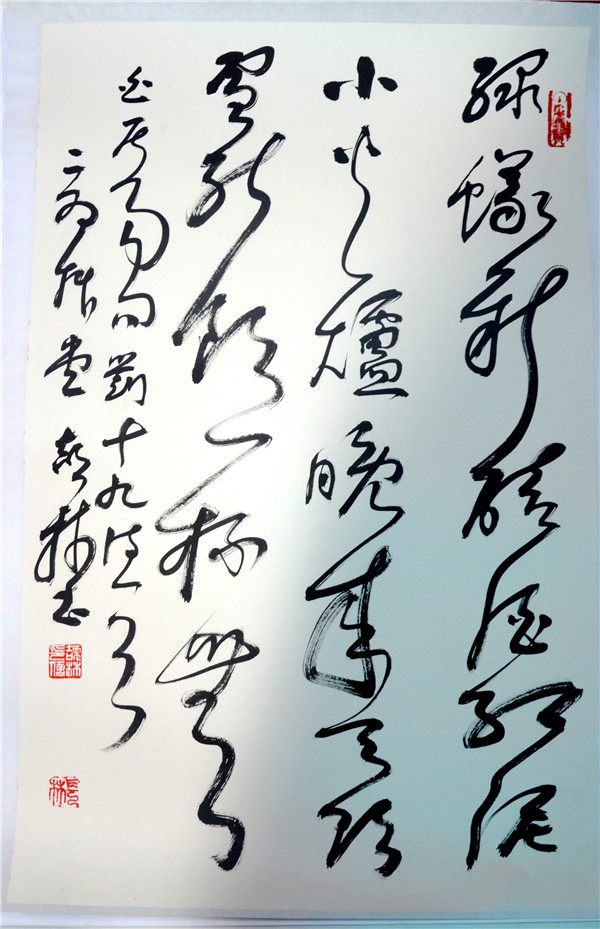 綠蟻新醅酒紅泥
小火爐晚來天欲
雪能飲一杯無
白居易問劉十九詩一首
堂 林书